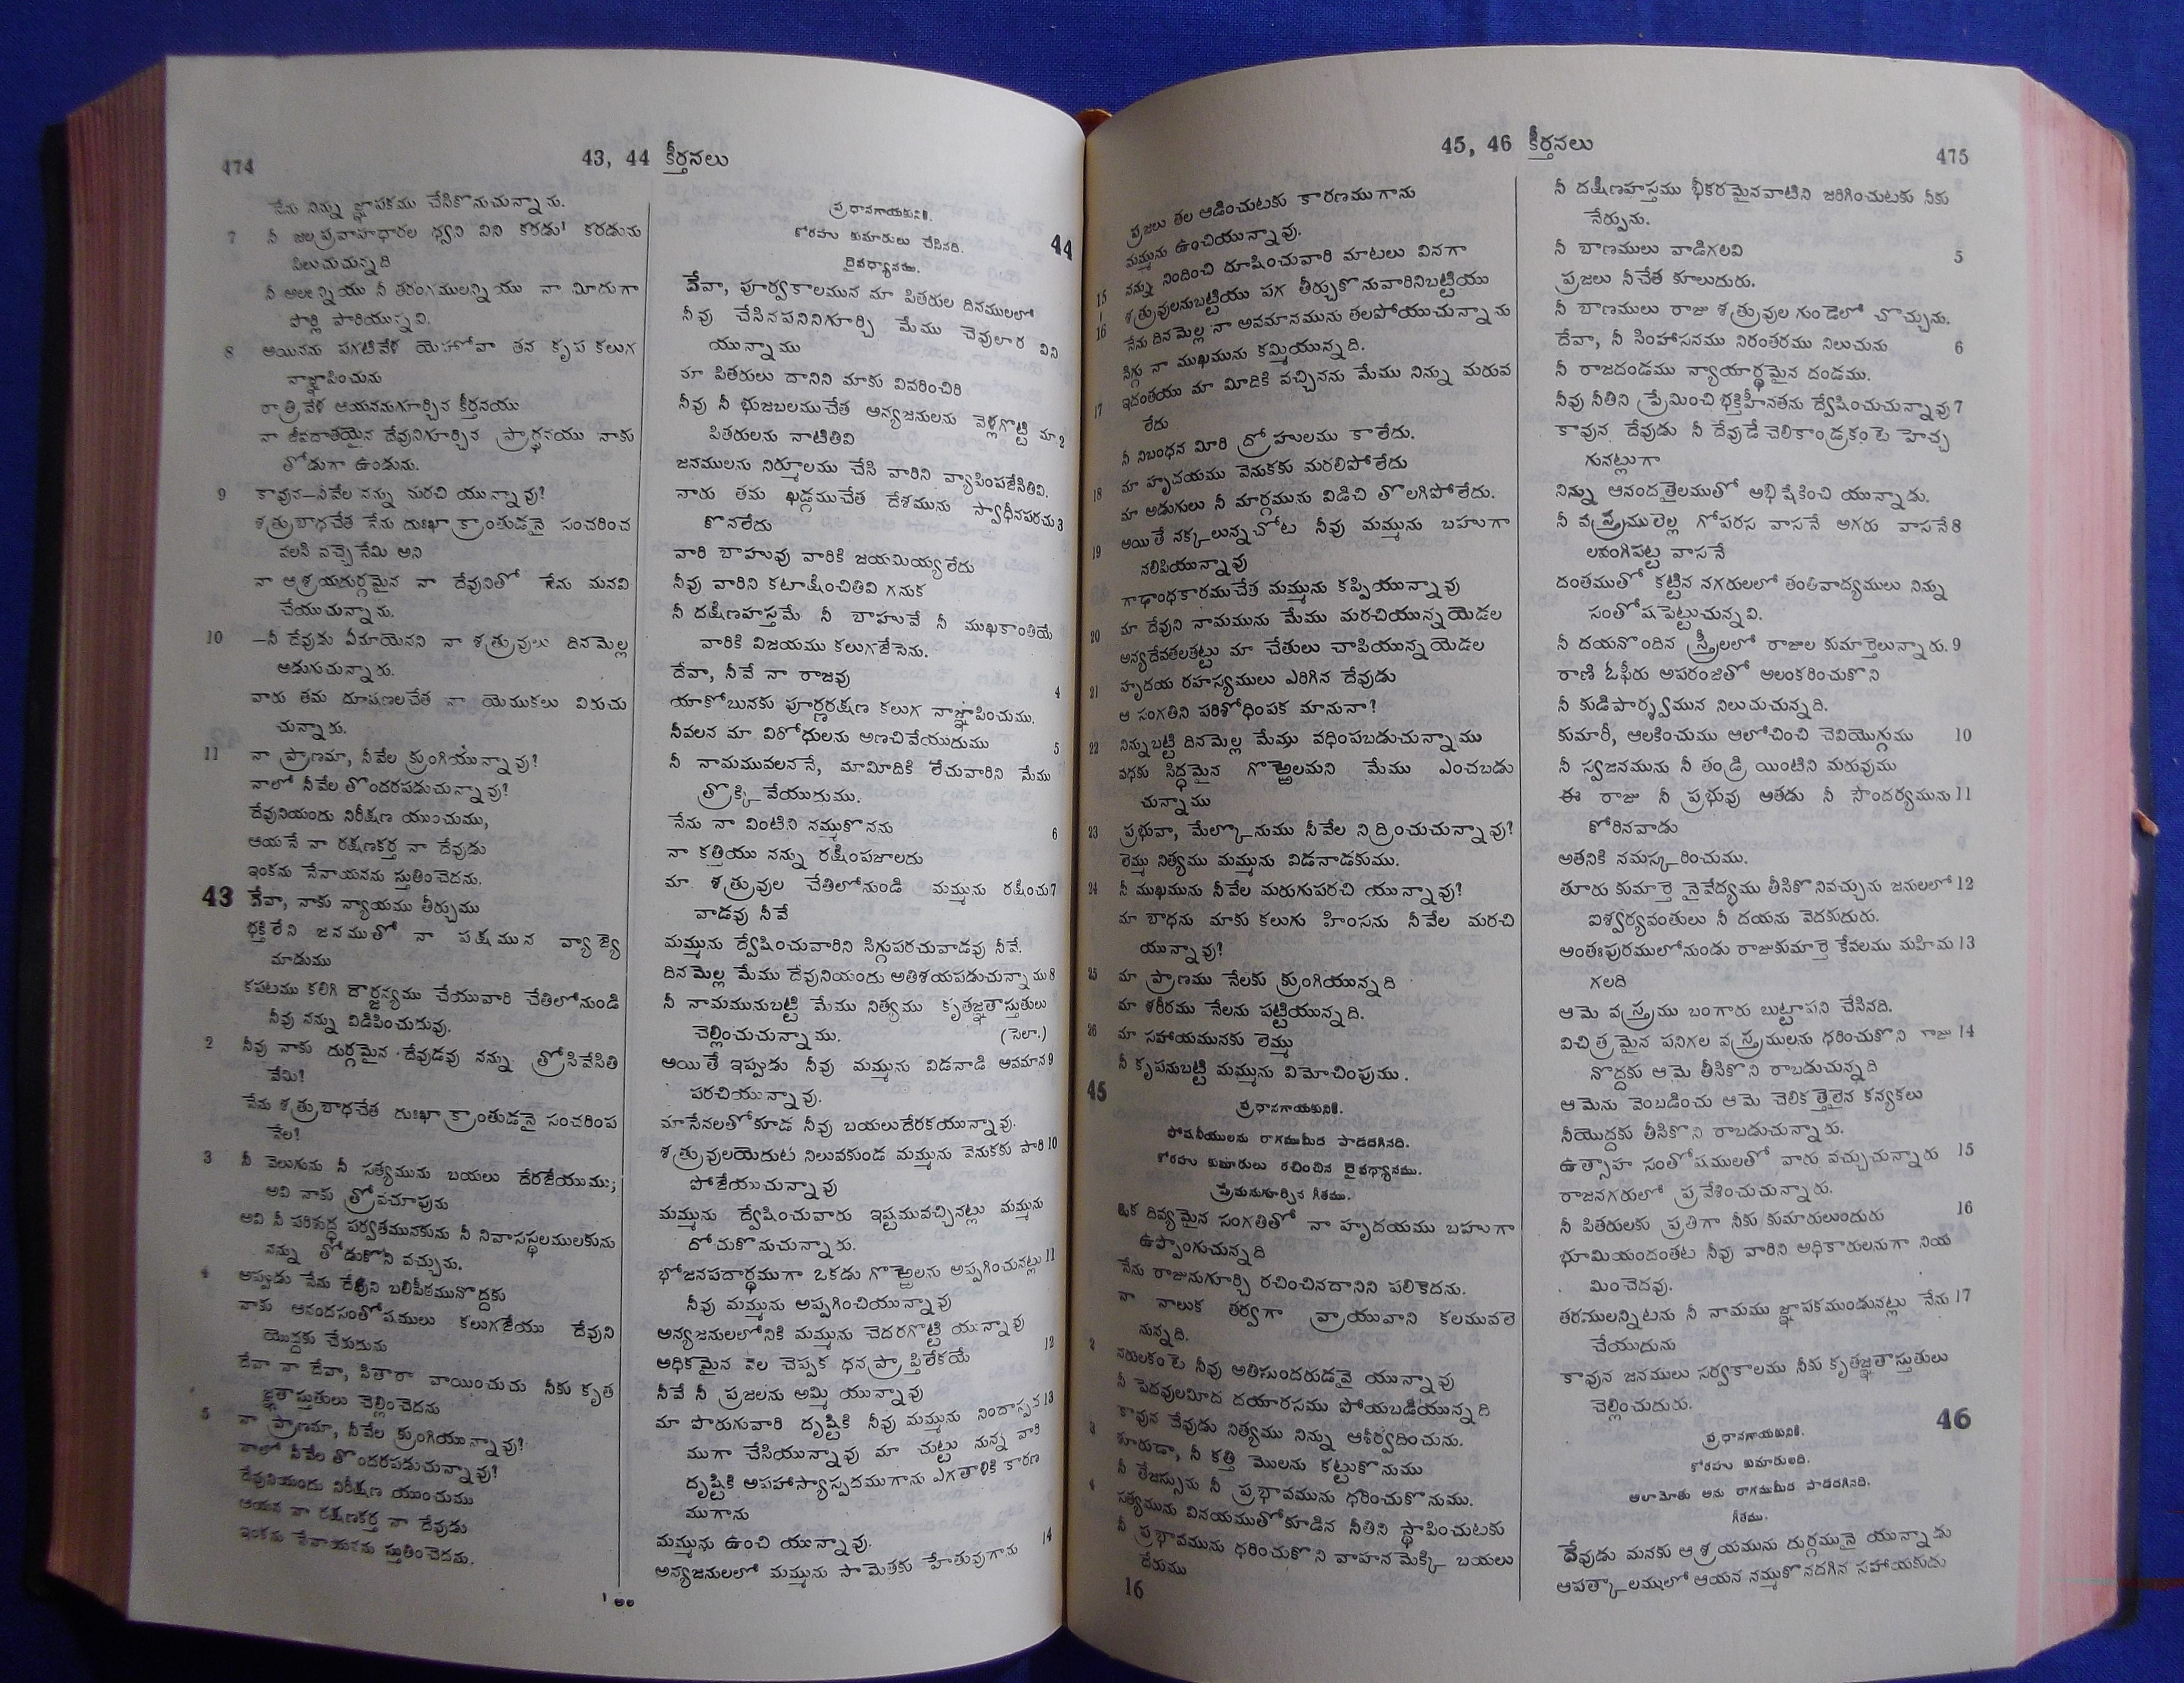 474
43, 44 కీర్తనలు
నేను నిన్ను జ్ఞాపకము చేసికొనుచున్నాను.
7 నీ జలప్రవాహధారల ధ్వని విని కరడు¹ కరడును
పిలుచుచున్నది
నీ అలలన్నియు నీ తరంగములన్నియు నా మీదుగా
పొర్లి పారియున్నవి.
8 అయినను పగటివేళ యెహోవా తన కృప కలుగ
నాజ్ఞాపించును
రాత్రివేళ ఆయననుగూర్చిన కీర్తనయు
నా జీవదాతయైన దేవునిగూర్చిన ప్రార్థనయు నాకు
తోడుగా ఉండును.
9 కావున—నీవేల నన్ను మరచి యున్నావు?
శత్రుబాధచేత నేను దుఃఖాక్రాంతుడనై సంచరించ
వలసి వచ్చెనేమి అని
నా ఆశ్రయదుర్గమైన నా దేవునితో నేను మనవి
చేయుచున్నాను.
10 —నీ దేవుడు ఏమాయెనని నా శత్రువులు దినమెల్ల
అడుగుచున్నారు.
వారు తమ దూషణలచేత నా యెముకలు విరుచు
చున్నారు.
11 నా ప్రాణమా, నీవేల క్రుంగియున్నావు?
నాలో నీవేల తొందరపడుచున్నావు?
దేవునియందు నిరీక్షణ యుంచుము,
ఆయనే నా రక్షణకర్త నా దేవుడు
ఇంకను నేనాయనను స్తుతించెదను.
43 దేవా, నాకు న్యాయము తీర్చుము
భక్తిలేని జనముతో నా పక్షమున వ్యాజ్యె
మాడుము
కపటము కలిగి దౌర్జన్యము చేయువారి చేతిలోనుండి
నీవు నన్ను విడిపించుదువు.
2 నీవు నాకు దుర్గమైన దేవుడవు నన్ను త్రోసివేసితి
వేమి?
నేను శత్రుబాధచేత దుఃఖాక్రాంతుడనై సంచరింప
నేల?
3 నీ వెలుగును నీ సత్యమును బయలు దేరజేయుము;
అవి నాకు త్రోవచూపును
అవి నీ పరిశుద్ధ పర్వతమునకును నీ నివాసస్థలములకును
నన్ను తోడుకొని వచ్చును.
4 అప్పుడు నేను దేవుని బలిపీఠమునొద్దకు
నాకు ఆనందసంతోషములు కలుగజేయు దేవుని
యొద్దకు చేరుదును
దేవా నా దేవా, సితారా వాయించుచు నీకు కృత
జ్ఞతాస్తుతులు చెల్లించెదను
5 నా ప్రాణమా, నీవేల క్రుంగియున్నావు?
నాలో నీవేల తొందరపడుచున్నావు?
దేవునియందు నిరీక్షణ యుంచుము
ఆయన నా రక్షణకర్త నా దేవుడు
ఇంకను నేనాయనను స్తుతించెదను.
ప్రధానగాయకునికి.
కోరహు కుమారులు చేసినది. 44
దైవధ్యానము.
దేవా, పూర్వకాలమున మా పితరుల దినములలో
నీవు చేసినపనినిగూర్చి మేము చెవులార విని
యున్నాము
మా పితరులు దానిని మాకు వివరించిరి
నీవు నీ భుజబలముచేత అన్యజనులను వెళ్లగొట్టి మా 2
పితరులను నాటితివి
జనములను నిర్మూలము చేసి వారిని వ్యాపింపజేసితివి.
వారు తమ ఖడ్గముచేత దేశమును స్వాధీనపరచు 3
కొనలేదు
వారి బాహువు వారికి జయమియ్యలేదు
నీవు వారిని కటాక్షించితివి గనుక
నీ దక్షిణహస్తమే నీ బాహువే నీ ముఖకాంతియే
వారికి విజయము కలుగజేసెను.
దేవా, నీవే నా రాజవు 4
యాకోబునకు పూర్ణరక్షణ కలుగ నాజ్ఞాపించుము.
నీవలన మా విరోధులను అణచివేయుదుము 5
నీ నామమువలననే, మామీదికి లేచువారిని మేము
త్రొక్కి వేయుదుము.
నేను నా వింటిని నమ్ముకొనను 6
నా కత్తియు నన్ను రక్షింపజాలదు
మా శత్రువుల చేతిలోనుండి మమ్మును రక్షించు 7
వాడవు నీవే
మమ్మును ద్వేషించువారిని సిగ్గుపరచువాడవు నీవే.
దినమెల్ల మేము దేవునియందు అతిశయపడుచున్నాము 8
నీ నామమునుబట్టి మేము నిత్యము కృతజ్ఞతాస్తుతులు
చెల్లించుచున్నాము. (సెలా.)
అయితే ఇప్పుడు నీవు మమ్మును విడనాడి అవమాన 9
పరచియున్నావు.
మాసేనలతోకూడ నీవు బయలుదేరకయున్నావు.
శత్రువులయెదుట నిలువకుండ మమ్మును వెనుకకు పారి 10
పోజేయుచున్నావు
మమ్మును ద్వేషించువారు ఇష్టమువచ్చినట్లు మమ్మును
దోచుకొనుచున్నారు.
భోజనపదార్థముగా ఒకడు గొఱ్ఱెలను అప్పగించునట్లు 11
నీవు మమ్మును అప్పగించియున్నావు
అన్యజనులలోనికి మమ్మును చెదరగొట్టి యున్నావు
అధికమైన వెల చెప్పక ధనప్రాప్తిలేకయే 12
నీవే నీ ప్రజలను అమ్మి యున్నావు
మా పొరుగువారి దృష్టికి నీవు మమ్మును నిందాస్పద 13
ముగా చేసియున్నావు మా చుట్టు నున్న వారి
దృష్టికి అపహాస్యాస్పదముగాను ఎగతాళికి కారణ
ముగాను
మమ్మును ఉంచి యున్నావు.
అన్యజనులలో మమ్మును సామెతకు హేతువుగాను 14
¹ అల
45, 46 కీర్తనలు
475
ప్రజలు తల ఆడించుటకు కారణముగాను
మమ్మును ఉంచియున్నావు.
15 నన్ను నిందించి దూషించువారి మాటలు వినగా
శత్రువులనుబట్టియు పగ తీర్చుకొనువారినిబట్టియు
16 నేను దినమెల్ల నా అవమానమును తలపోయుచున్నాను
సిగ్గు నా ముఖమును కమ్మియున్నది.
17 ఇదంతయు మా మీదికి వచ్చినను మేము నిన్ను మరువ
లేదు
నీ నిబంధన మీరి ద్రోహులము కాలేదు.
18 మా హృదయము వెనుకకు మరలిపోలేదు
మా అడుగులు నీ మార్గమును విడిచి తొలగిపోలేదు.
19 అయితే నక్కలున్నచోట నీవు మమ్మును బహుగా
నలిపియున్నావు
గాఢాంధకారముచేత మమ్మును కప్పియున్నావు
20 మా దేవుని నామమును మేము మరచియున్నయెడల
అన్యదేవతలతట్టు మా చేతులు చాపియున్నయెడల
21 హృదయ రహస్యములు ఎరిగిన దేవుడు
ఆ సంగతిని పరిశోధింపక మానునా?
22 నిన్నుబట్టి దినమెల్ల మేము వధింపబడుచున్నాము
వధకు సిద్ధమైన గొఱ్ఱెలమని మేము ఎంచబడు
చున్నాము
23 ప్రభువా, మేల్కొనుము నీవేల నిద్రించుచున్నావు?
లెమ్ము నిత్యము మమ్మును విడనాడకుము.
24 నీ ముఖమును నీవేల మరుగుపరచి యున్నావు?
మా బాధను మాకు కలుగు హింసను నీవేల మరచి
యున్నావు?
25 మా ప్రాణము నేలకు క్రుంగియున్నది
మా శరీరము నేలను పట్టియున్నది.
26 మా సహాయమునకు లెమ్ము
నీ కృపనుబట్టి మమ్మును విమోచింపుము.
45
ప్రధానగాయకునికి.
షోషనీయులను రాగముమీద పాడదగినది.
కోరహు కుమారులు రచించిన దైవధ్యానము.
ప్రేమనుగూర్చిన గీతము.
ఒక దివ్యమైన సంగతితో నా హృదయము బహుగా
ఉప్పొంగుచున్నది
నేను రాజునుగూర్చి రచించినదానిని పలికెదను.
నా నాలుక త్వరగా వ్రాయువాని కలమువలె
నున్నది.
2 నరులకంటె నీవు అతిసుందరుడవై యున్నావు
నీ పెదవులమీద దయారసము పోయబడియున్నది
కావున దేవుడు నిత్యము నిన్ను ఆశీర్వదించును.
3 శూరుడా, నీ కత్తి మొలను కట్టుకొనుము
నీ తేజస్సును నీ ప్రభావమును ధరించుకొనుము.
4 సత్యమును వినయముతోకూడిన నీతిని స్థాపించుటకు
నీ ప్రభావమును ధరించుకొని వాహనమెక్కి బయలు
దేరుము
16
నీ దక్షిణహస్తము భీకరమైనవాటిని జరిగించుటకు నీకు
నేర్పును.
నీ బాణములు వాడిగలవి 5
ప్రజలు నీచేత కూలుదురు.
నీ బాణములు రాజు శత్రువుల గుండెలో చొచ్చును.
దేవా, నీ సింహాసనము నిరంతరము నిలుచును 6
నీ రాజదండము న్యాయార్థమైన దండము.
నీవు నీతిని ప్రేమించి భక్తిహీనతను ద్వేషించుచున్నావు 7
కావున దేవుడు నీ దేవుడే చెలికాండ్రకంటె హెచ్చ
గునట్లుగా
నిన్ను ఆనందతైలముతో అభిషేకించి యున్నాడు.
నీ వస్త్రములెల్ల గోపరస వాసనే అగరు వాసనే 8
లవంగిపట్ట వాసనే
దంతముతో కట్టిన నగరులలో తంతివాద్యములు నిన్ను
సంతోషపెట్టుచున్నవి.
నీ దయనొందిన స్త్రీలలో రాజుల కుమార్తెలున్నారు. 9
రాణి ఓఫీరు అపరంజితో అలంకరించుకొని
నీ కుడిపార్శ్వమున నిలుచుచున్నది.
కుమారీ, ఆలకించుము ఆలోచించి చెవియొగ్గుము 10
నీ స్వజనమును నీ తండ్రి యింటిని మరువుము
ఈ రాజు నీ ప్రభువు అతడు నీ సౌందర్యమును 11
కోరినవాడు
అతనికి నమస్కరించుము.
తూరు కుమార్తె నైవేద్యము తీసికొనివచ్చును జనులలో 12
ఐశ్వర్యవంతులు నీ దయను వెదకుదురు.
అంతఃపురములోనుండు రాజుకుమార్తె కేవలము మహిమ 13
గలది
ఆమె వస్త్రము బంగారు బుట్టాపని చేసినది.
విచిత్రమైన పనిగల వస్త్రములను ధరించుకొని రాజు 14
నొద్దకు ఆమె తీసికొని రాబడుచున్నది
ఆమెను వెంబడించు ఆమె చెలికత్తెలైన కన్యకలు
నీయొద్దకు తీసికొని రాబడుచున్నారు.
ఉత్సాహ సంతోషములతో వారు వచ్చుచున్నారు 15
రాజనగరులో ప్రవేశించుచున్నారు.
నీ పితరులకు ప్రతిగా నీకు కుమారులుందురు 16
భూమియందంతట నీవు వారిని అధికారులనుగా నియ
మించెదవు.
తరములన్నిటను నీ నామము జ్ఞాపకముండునట్లు నేను 17
చేయుదును
కావున జనములు సర్వకాలము నీకు కృతజ్ఞతాస్తుతులు
చెల్లించుదురు.
46
ప్రధానగాయకునికి.
కోరహు కుమారులది.
అలామోతు అను రాగముమీద పాడదగినది.
గీతము.
దేవుడు మనకు ఆశ్రయమును దుర్గమునై యున్నాడు
ఆపత్కాలములో ఆయన నమ్ముకొనదగిన సహాయకుడు